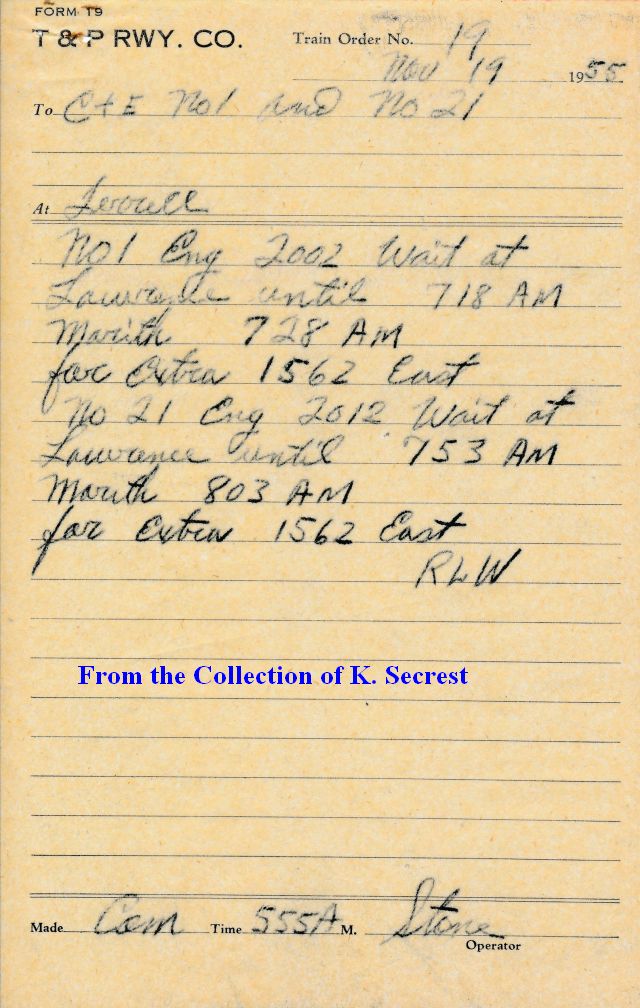 FORM T9
T & P RWY. CO.
Train Order No. 19
Nov 19 1955
To C+E No1 and No 21
At Terrell
No1 Eng 2002 Wait at
Lawrence until 718 AM
Marith 728 AM
for Extra 1562 East
No 21 Eng 2012 Wait at
Lawrence until 753 AM
Marith 803 AM
for Extra 1562 East
RLW
From the Collection of K. Secrest
Made Com Time 555A M. Stone
Operator